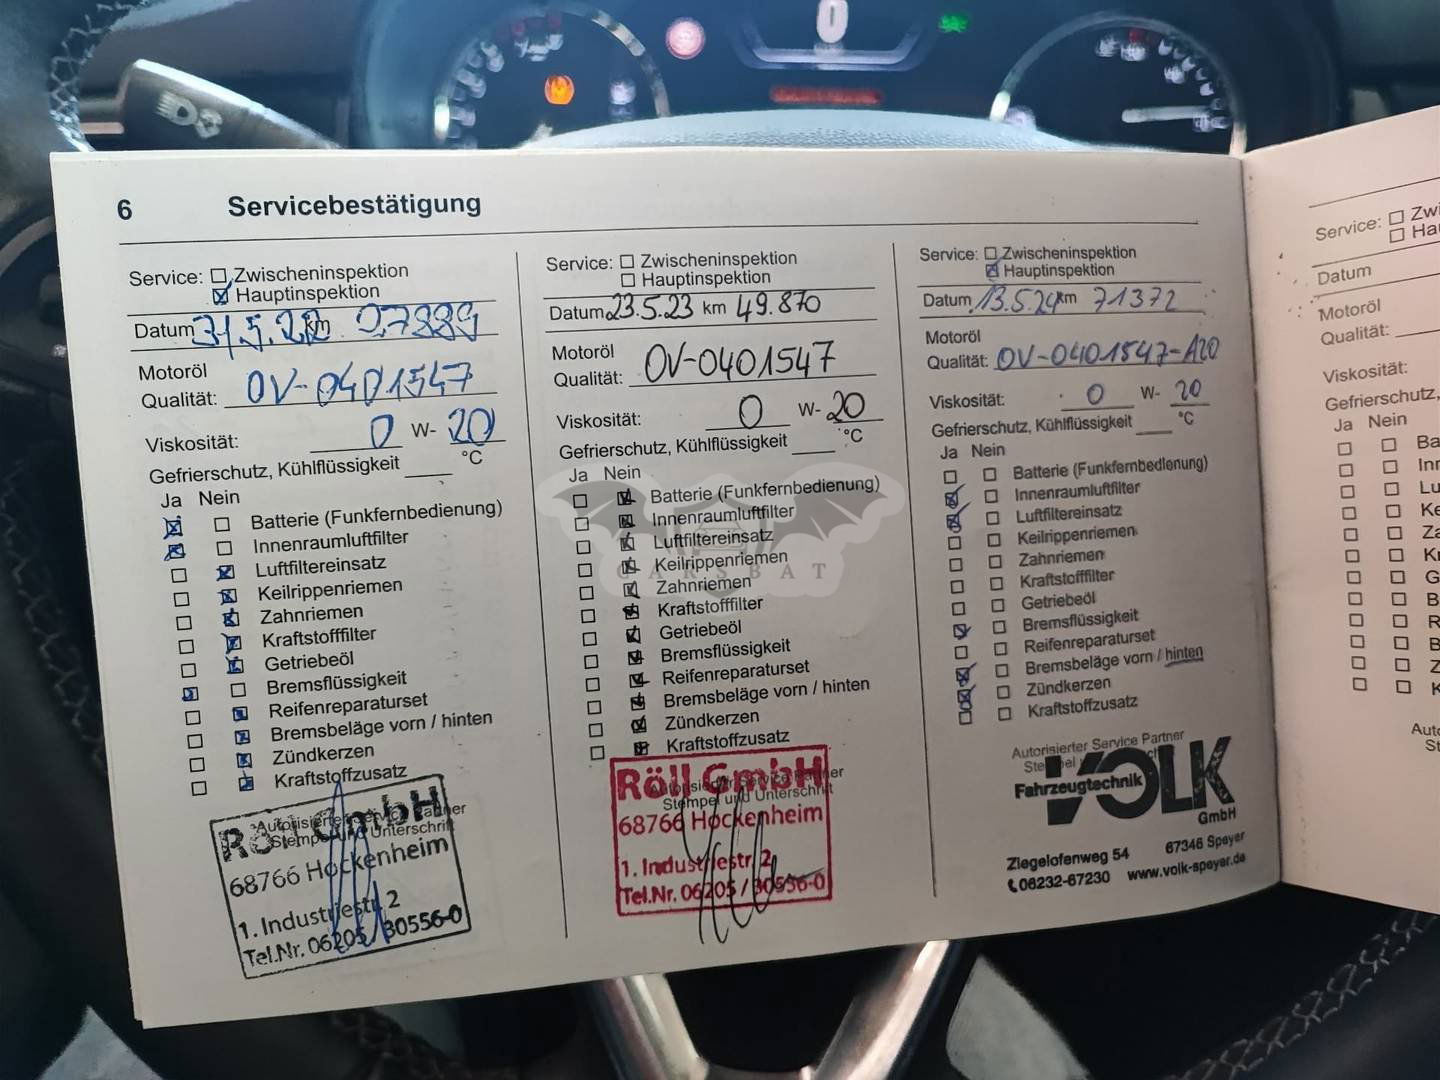 6 Servicebestätigung
Service: Zwischeninspektion
Hauptinspektion
Datum 31.5.22 km 27889
Motoröl
Qualität: OV-0401547
Viskosität: 0 W- 20
Gefrierschutz, Kühlflüssigkeit °C
Ja Nein
Batterie (Funkfernbedienung)
Innenraumluftfilter
Luftfiltereinsatz
Keilrippenriemen
Zahnriemen
Kraftstofffilter
Getriebeöl
Bremsflüssigkeit
Reifenreparaturset
Bremsbeläge vorn / hinten
Zündkerzen
Kraftstoffzusatz
Autorisierter Service Partner
Stempel und Unterschrift
Röll GmbH
68766 Hockenheim
1. Industriestr. 2
Tel.Nr. 06205 / 30556-0
Service: Zwischeninspektion
Hauptinspektion
Datum 23.5.23 km 49.870
Motoröl
Qualität: OV-0401547
Viskosität: 0 W- 20
Gefrierschutz, Kühlflüssigkeit °C
Ja Nein
Batterie (Funkfernbedienung)
Innenraumluftfilter
Luftfiltereinsatz
Keilrippenriemen
Zahnriemen
Kraftstofffilter
Getriebeöl
Bremsflüssigkeit
Reifenreparaturset
Bremsbeläge vorn / hinten
Zündkerzen
Kraftstoffzusatz
Autorisierter Service Partner
Stempel und Unterschrift
Röll GmbH
68766 Hockenheim
1. Industriestr. 2
Tel.Nr. 06205 / 30556-0
CARSBAT
Service: Zwischeninspektion
Hauptinspektion
Datum 13.5.24 km 71372
Motoröl
Qualität: OV-0401547-A20
Viskosität: 0 W- 20
Gefrierschutz, Kühlflüssigkeit °C
Ja Nein
Batterie (Funkfernbedienung)
Innenraumluftfilter
Luftfiltereinsatz
Keilrippenriemen
Zahnriemen
Kraftstofffilter
Getriebeöl
Bremsflüssigkeit
Reifenreparaturset
Bremsbeläge vorn / hinten
Zündkerzen
Kraftstoffzusatz
Autorisierter Service Partner
VOLK
Fahrzeugtechnik
GmbH
Ziegelofenweg 54 67346 Speyer
06232-67230 www.volk-speyer.de
Service: Zwi
Hau
Datum
Motoröl
Qualität:
Viskosität:
Gefrierschutz,
Ja Nein
Ba
Inn
Lu
Ke
Za
Kr
G
B
R
B
Z
K
Auto
St
0